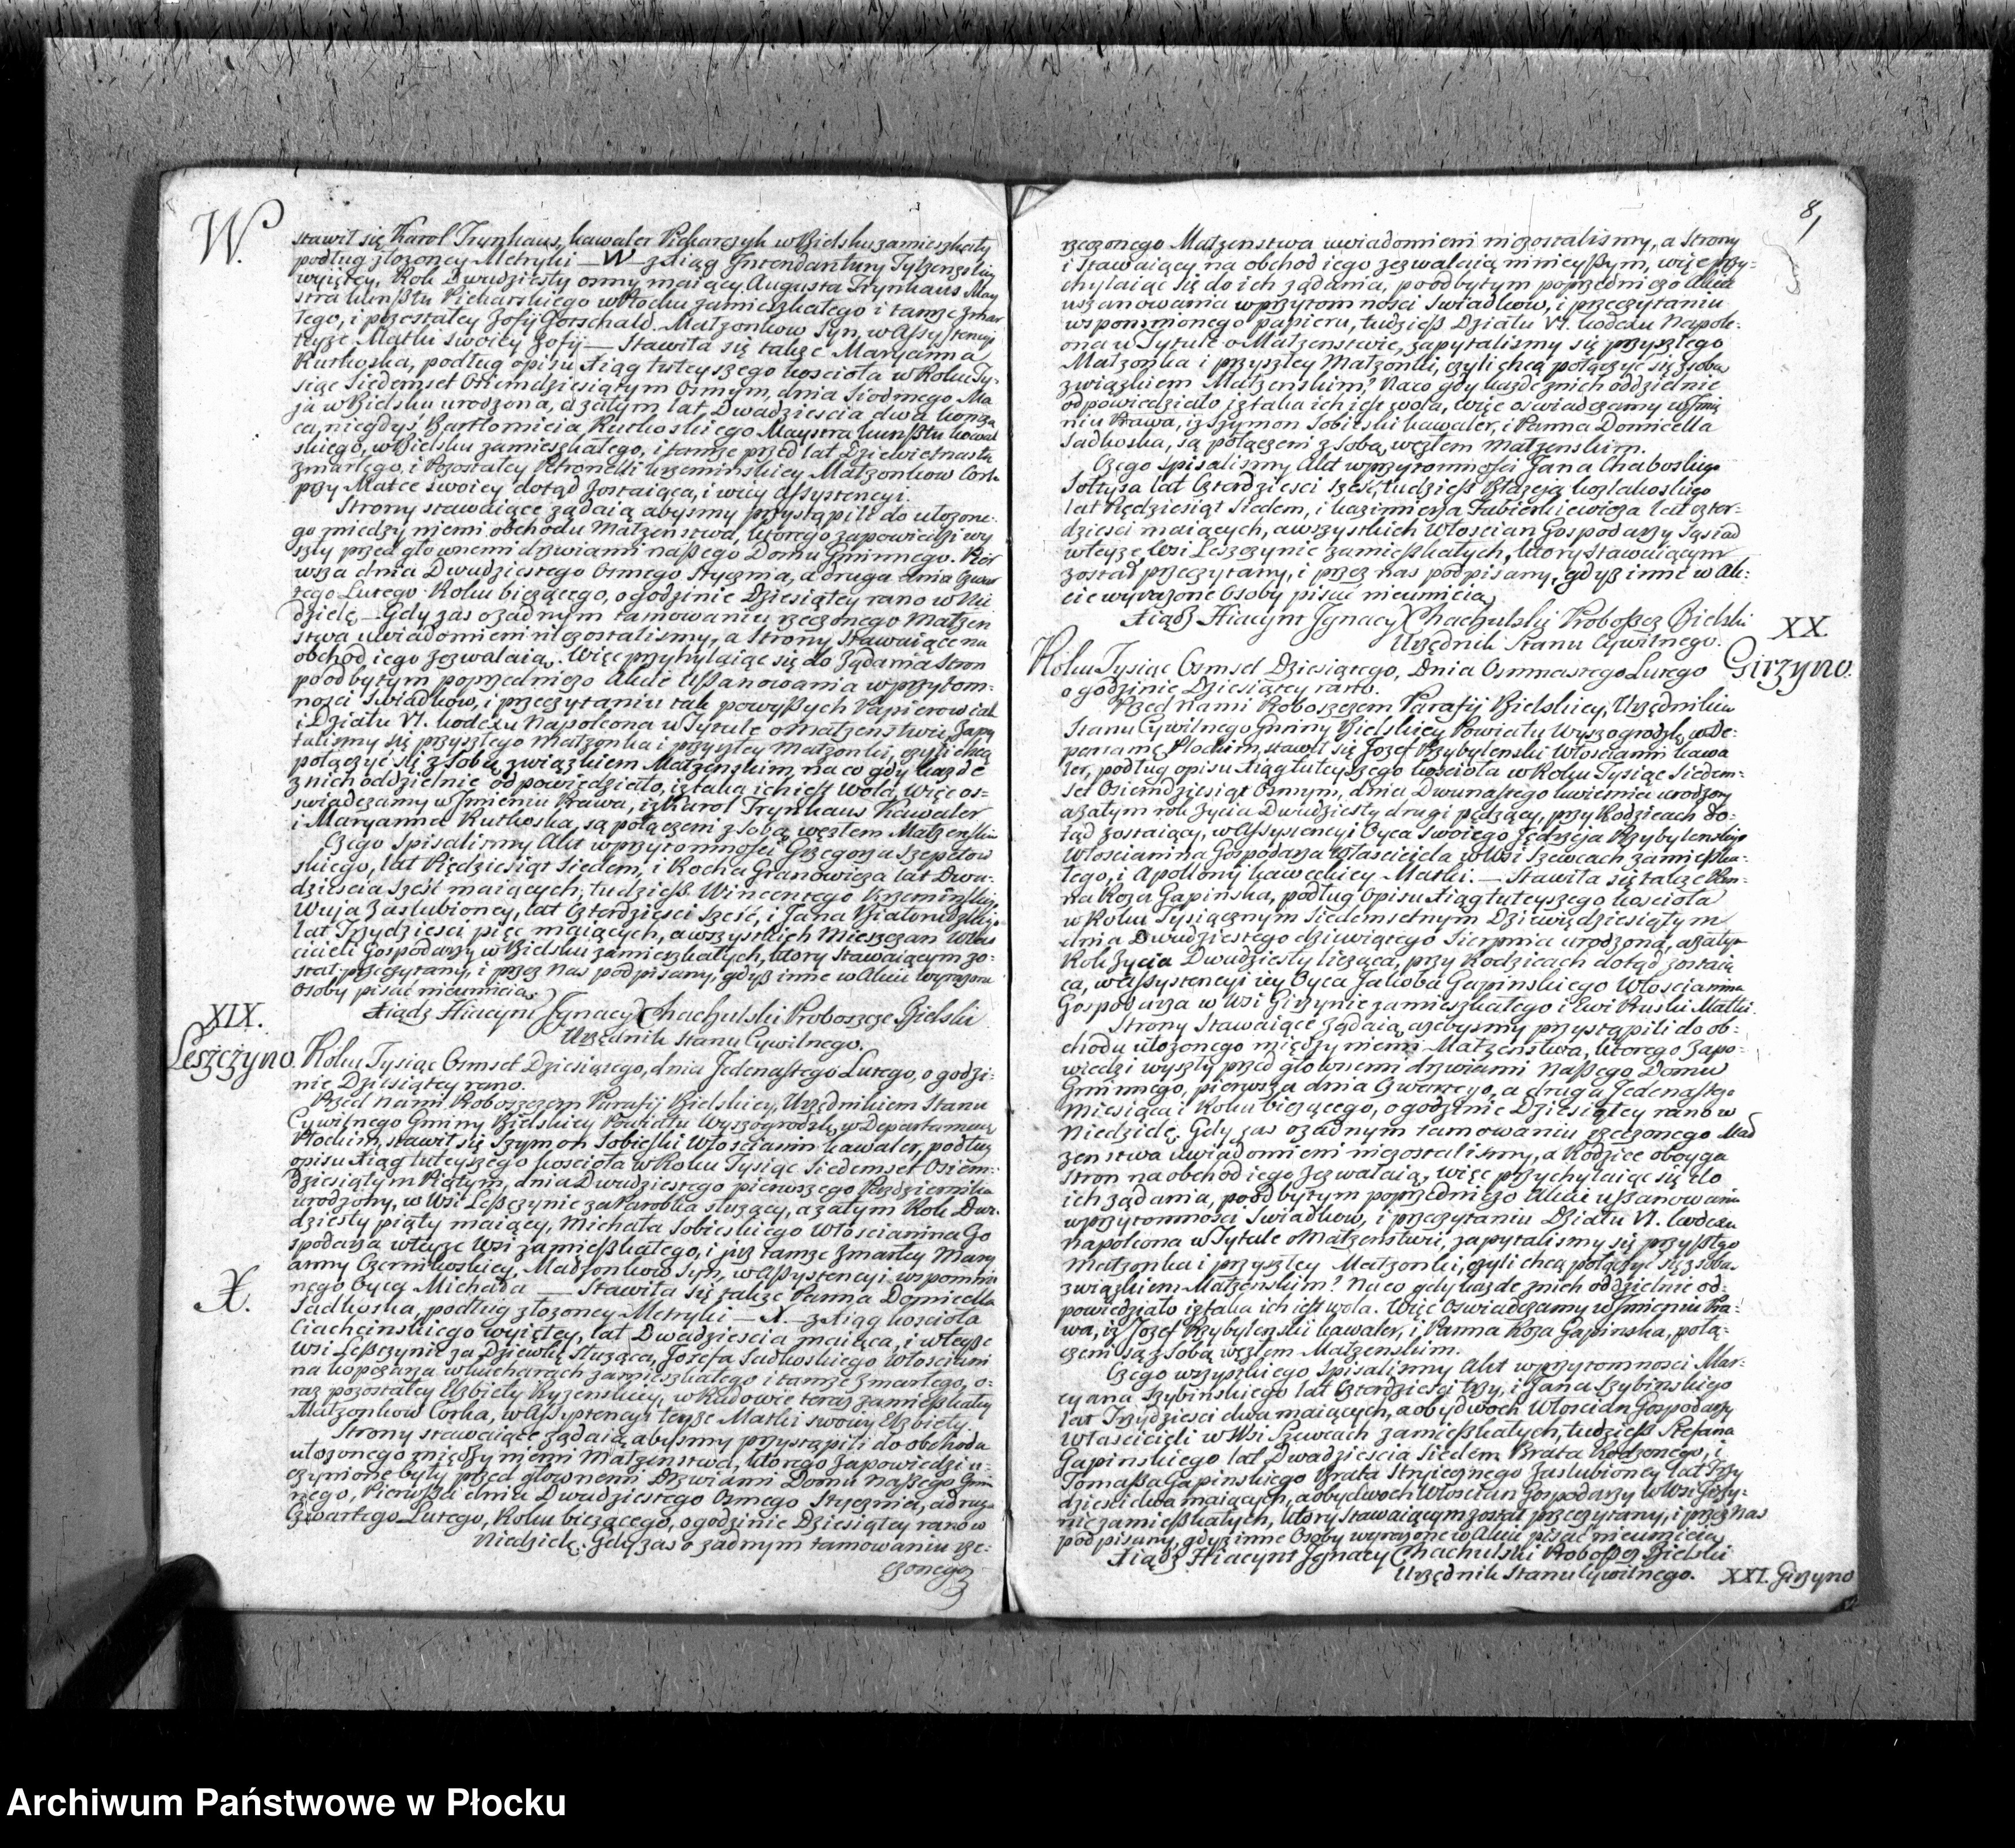 W.
stawił się Karol Trynhaus, kawaler Piekarczyk w Bielsku zamieszkały
podług złożoney Metryki — W — z Xiąg Intendantury
wyiętey, Rok Dwudziesty osmy maiący, Augusta Trynhaus May
stra kunsztu Piekarskiego w Płocku zamieszkałego i tamże zmar
łego, i pozostałey Zofij Gotschald. Małżonkow Syn, w Assystencyi
teyże Matki swoiey Zofij — Stawiła się także Maryanna
Rutkoska, podług opisu Xiąg tuteyszego koscioła w Roku Ty-
siąc Siedemset Osiemdziesiątym Osmym, dnia Siodmego Ma
ja w Bielsku urodzona, a zatym lat Dwadziescia dwa
niegdys Bartłomieia Rutkoskiego Maystra kunsztu kowal
skiego, w Bielsku zamieszkałego, i tamże przed lat Dziewietnastu
zmarłego, i Pozostałey Petronelli Krzeminskiey Małzonkow Corka
przy Matce swoiey dotąd zostaiąca, i wiey assystencyi.
Strony stawaiące żądaią abysmy przystąpili do ułożone-
go między niemi obchodu Małżenstwa, ktorego zapowiedzi wy
szły przed głownemi drzwiami naszego Domu Gminnego. Pier
wsza dnia Dwudziestego Osmego Stycznia, a druga dnia Czwar
tego Lutego Roku biezącego, o godzinie Dziesiątey rano w Nie
dzielę — Gdy zas o żadnym tamowaniu rzeczonego Małżen
stwa uwiadomieni niezostalismy, a Strony stawaiące na
obchod iego zezwalaią. Więc przyhylaiąc się do żądania stron
po odbytym poprzedniczo Akcie Uszanowania w przytom-
nosci Swiadkow, i przeczytaniu tak powyższych Papierow iak
i Działu VI. kodexu Napoleona w Tytule o Małżenstwie, Zapy
talismy się przyszłego Małżonka i przyszłey Małżonki, czyli chcą
połączyć się z sobą związkiem Małżenskim, na co gdy każde
z nich oddzielnie odpowiedziało, iż taka ich iest wola, Więc os-
swiadczamy w Jmieniu Prawa, iż Karol Trynhaus Kawaler
i Maryanna Rutkoska, są połączeni z sobą węzłem Małżenskim
Czego Spisalismy Akt w przytomnosci Grzegorza Szepetow
skiego, lat Pięćdziesiąt Siedem, i Rocha Granowicza lat Dwa-
dziescia szesć maiących, tudziesz Wincentego Krzeminskiego
Wuja Zaslubioney, lat Czterdziesci szesć, i Jana
lat Trzydziesci pięc maiących, a wszystkich Mieszczan Włas
cicieli Gospodarzy w Bielsku zamieszkałych, ktory Stawaiącym zo-
stał przeczytany, i przez nas podpisany, gdyż inne w Akcie wyrażone
Osoby pisać nieumieią.
Xiądz Hiacynt Jgnacy Chachulski Proboszcz Bielski
Urzędnik Stanu Cywilnego.
XIX.
Leszczyno.
Roku Tysiąc Osmset Dziesiątego, dnia Jedenastego Lutego, o godzi-
nie Dziesiątey rano.
Przed nami Proboszczem Parafij Bielskiey, Urzędnikiem Stanu
Cywilnego Gminy Bielskiey Powiatu Wyszogrodzk. w Departamencie
Płockim, stawił się Szymon Sobieski Włoscianin kawaler, podług
opisu Xiąg tuteyszego kosciola w Roku Tysiąc Siedemset Osiem-
dziesiątym Piątym, dnia Dwudziestego pierwszego Pazdziernika
urodzony, w Wsi Leszczynie za Parobka służący, a zatym Rok Dwu-
dziesty piąty maiący, Michała Sobieskiego Włoscianina Go
spodarza w teyże Wsi zamieszkałego, i już tamże zmarłey Mary
anny Czernikoskiey, Małżonkow Syn, w Assystencyi wspomnio
nego Oyca Michała — Stawiła się także Panna Domicella
X.
Sadkoska, podług złożoney Metryki — X — z Xiąg kosciola
Ciachcinskiego wyiętey, lat Dwadziescia maiąca, i w teyże
Wsi Leszczynie za Dziewkę służąca, Jozefa Sadkoskiego Włoscianina
na kopczarza w kucharach zamieszkałego i tamże zmarłego, o-
raz pozostałey Elzbiety Ryzenskiey, w Rudowie teraz zamieszkałey
Małżonkow Corka, w Assystencyi teyże Matki swoiey Elzbiety.
Strony stawaiące żądaią abysmy przystąpili do obchodu
ułożonego między niemi Małżenstwa, ktorego zapowiedzi u-
czynione były przed głownemi Drzwiami Domu Naszego Gmin
nego, Pierwsza dnia Dwudziestego Osmego Stycznia, a druga
Czwartego Lutego, Roku biezącego, o godzinie Dziesiątey rano w
Niedzielę. Gdy zas o żadnym tamowaniu rze-
czonego
8,
rzeczonego Małzenstwa uwiadomieni niezostalismy, a Strony
i Stawaiący na obchod iego zezwalaią ninieyszym, więc przy-
chylaiąc się do ich żądania, po odbytym poprzedniczo Akcie
uszanowania w przytomnosci Swiadkow, i przeczytaniu
wspomnionego papieru, tudziesz Działu VI. kodexu Napole-
ona w Tytule o Małzenstwie, zapytalismy się przyszłego
Małżonka i przyszłey Małżonki, czyli chcą połączyc się z sobą
związkiem Małzenskim? Na co gdy każde z nich oddzielnie
odpowiedziało iż taka ich iest wola, więc oswiadczamy w Jmie
niu Prawa, iż Szymon Sobieski kawaler, i Panna Domicella
Sadkoska, są połączeni z sobą węzłem małzenskim.
Czego spisalismy Akt w przytomnosci Jana Chaboskiego
Sołtysa lat Czterdziesci szesć, tudziesz Błazeja kozłakoskiego
lat Pięćdziesiąt Siedem, i kazimierza Fabierkiewicza lat czter-
dziesci maiących, a wszystkich Włoscian Gospodarzy Sąsiad
w teyże Wsi Leszczynie zamieszkałych, ktory stawaiącym
został przeczytany, i przez nas podpisany, gdyż inne w Ak-
cie wyrażone Osoby pisać nieumieią.
Xiądz Hiacynt Jgnacy Chachulski Proboszcz Bielski
Urzędnik Stanu Cywilnego.
XX.
Girzyno.
Roku Tysiąc Osmset Dziesiątego, Dnia Osmnastego Lutego
o godzinie Dziesiątey rano.
Przed nami Proboszczem Parafij Bielskiey, Urzędnikiem
Stanu Cywilnego Gminy Bielskiey Powiatu Wyszogrodzk. w De-
partame. Płockim, stawił się Jozef Przybylenski Włoscianin kawa
ler, podług opisu Xiąg tuteyszego kosciola w Roku Tysiąc Siedem-
set Osiemdziesiąt Osmym, dnia Dwunastego kwietnia urodzony
a zatym rok życia Dwudziesty drugi pędzący, przy Rodzicach do-
tąd zostaiący, w Assystencyi Oyca swoiego Jędrzeja Przybylenskiego
Włoscianina Gospodarza Własciciela w Wsi Szewcach zamieszka-
łego, i Apollonij kaweckiey Matki. — Stawiła się także Pan-
na Roza Gapinska, podług opisu Xiąg tuteyszego kosciola
w Roku Tysiącznym Siedemsetnym Dziewiędziesiątym
dnia Dwudziestego dziewiątego Sierpnia urodzona, a zatym
Rok Zycia Dwudziesty licząca, przy Rodzicach dotąd zostaią
ca, w Assystencyi iey Oyca Jakoba Gapinskiego Włoscianina
Gospodarza w Wsi Girzynie zamieszkałego i Ewi Matki.
Strony Stawaiące żądaią, azebysmy przystąpili do ob-
chodu ułożonego między niemi Małżenstwa, ktorego Zapo-
wiedzi wyszły przed głownemi drzwiami Naszego Domu
Gminnego, pierwsza dnia Czwartego, a druga Jedenastego
Miesiąca i Roku biezącego, o godzinie Dziesiątey rano w
Niedzielę. Gdy zas o żadnym tamowaniu rzeczonego Mał
żenstwa uwiadomieni niezostalismy, a Rodzice oboyga
stron na obchod iego zezwalaią, więc przychylaiąc się do
ich żądania, po odbytym poprzedniczo Akcie uszanowania
w przytomności Swiadkow, i przeczytaniu Działu VI. kodexu
Napoleona w Tytule o Małzenstwie, zapytalismy się przyszłego
Małżonka i przyszłey Małżonki, czyli chcą połączyc się z sobą
związkiem Małżenskim? Na co gdy każde z nich oddzielnie od-
powiedziało iż taka ich iest wola. Więc Oswiadczamy w Jmieniu Pra-
wa, iż Jozef Przybylenski kawaler, i Panna Roza Gapinska, połą-
czeni są z sobą węzłem Małżenskim.
Czego wszystkiego Spisalismy Akt w przytomnosci Mar-
cyana Szybinskiego lat Czterdziesci trzy, i Jana Szybinskiego
lat Trzydziesci dwa maiących, a obydwoch Włoscian Gospodarzy
Włascicieli w Wsi Szewcach zamieszkałych, tudziesz Stefana
Gapinskiego lat Dwadziescia Siedem Brata Rodzonego, i
Tomasza Gapinskiego Brata Stryiecznego Zaslubioney lat Trzy
dziesci dwa maiących, a obydwoch Włoscian Gospodarzy w Wsi Girzy-
nie zamieszkałych, ktory Stawaiącym został przeczytany, i przez Nas
podpisany, gdyż inne Osoby wyrażone w Akcie pisać nieumieią.
Xiądz Hiacynt Jgnacy Chachulski Proboszcz Bielski
Urzędnik Stanu Cywilnego.
XXI. Girzyno
Archiwum Państwowe w Płocku